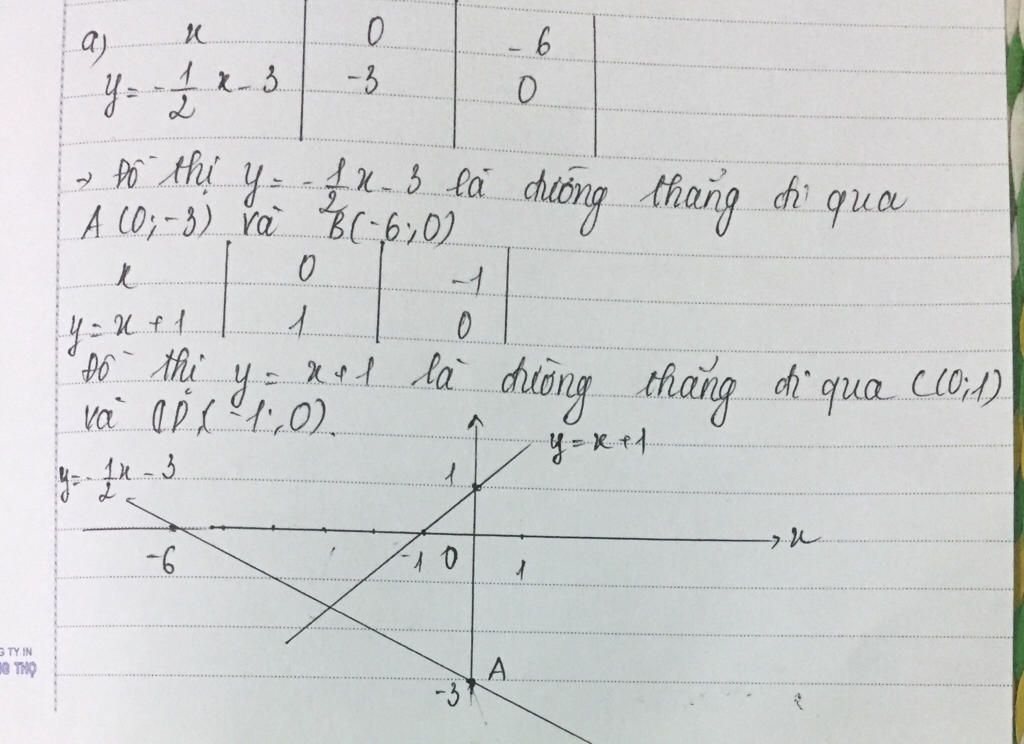 a) x 0 -6
y = -1/2 x - 3 -3 0
→ Đồ thị y = -1/2 x - 3 là đường thẳng đi qua
A (0;-3) và B(-6;0)
x 0 -1
y = x + 1 1 0
Đồ thị y = x+1 là đường thẳng đi qua C(0;1)
và D(-1;0).
y = x+1
y = -1/2 x - 3
1
x
-6 -1 0 1
A
-3
TY IN